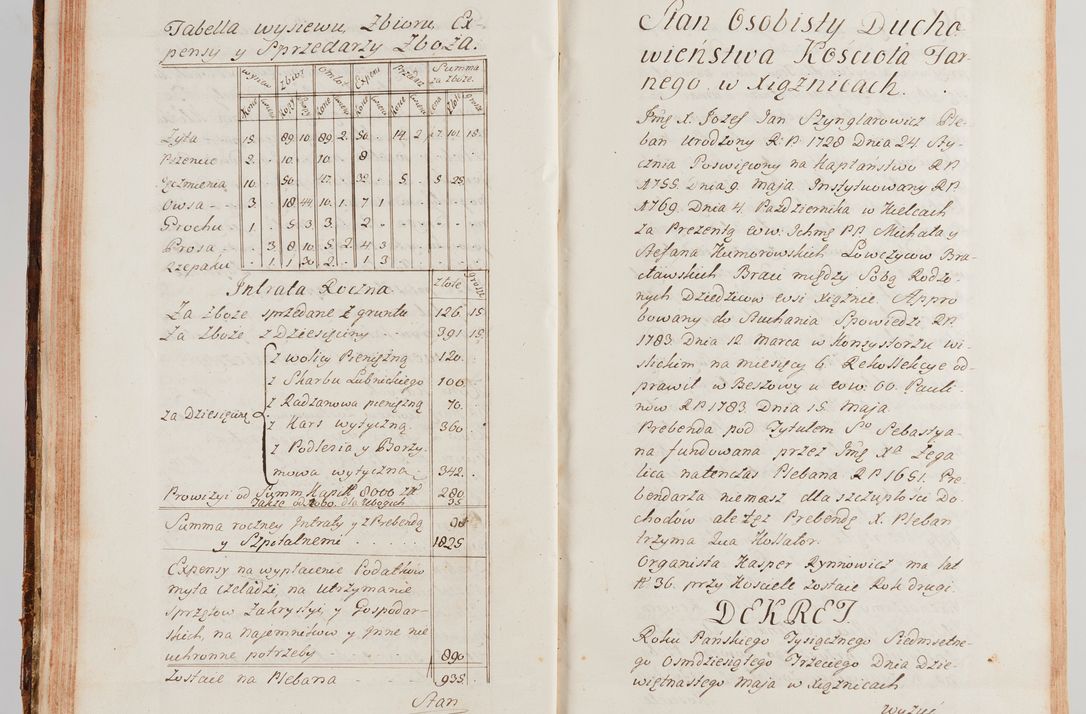 Tabella wysiewu, Zbioru Ex-
pensy y Sprzedarzy Zboża.
wysiew zbior omłot Expens przedaż Summa za zboże.
Kopy korce korce korce cena złote grosze
Żyta 18. 89 10. 89 2. 50. 14. 2. 17. 101 15.
Pszenice 2. 10. 10. 8
Jęczmienia 10. 50. 47. 32. 5. 5. 25.
Owsa 3. 18 44 10. 1. 7 1
Grochu 1. 5 3 3. 2
Prosa 3 8 10. 5. 2 4 3
Rzepaku 1. 1 30 2. 1 3
Intrata Roczna złote grosze
Za zboże sprzedane z gruntu 126 15
Za zboże z Dziesięciny 391 15.
z wolicy Pieniężną 120.
z Skarbu Lubnickiego 100
z Radzanowa pieniężną 70.
za Dziesięcinę
z Kars wytyczną 360
z Podlesia y Borzy-
mowa wytyczna 342.
Prowizyi od Summ Kapit. 8000 zł. 280
Także od 1000. dla ubogich 35
Summa roczney Intraty y z Prebendą
y Szpitalnemi 1825
Expensy na wypłacenie Podatków
myta czeladzi, na utrzymanie
sprzętow Zakrystyi, y Gospodar-
skich, na Najemników y Inne nie
uchronne potrzeby 890
Zostaie na Plebana 935.
Stan
Stan Osobisty Ducho
wieństwa Kościoła Far-
nego w Xiążnicach.
Jmć X. Jozef Jan Szynglarowicz Ple-
ban Urodzony R.P. 1728 Dnia 24 Sty-
cznia Poswięcony na Kapłaństwo R.P.
1755. Dnia 9. Maja Instytuowany R.P.
1769. Dnia 4. Pazdziernika w Kielcach
za Prezentą ww. Ichmć PP. Michała y
Stefana Humorowskich Łowczycow Bra-
cławskich Braci między Sobą Rodzo-
nych Dziedzicow wsi Xiążnic Appro
bowany do Słuchania Spowiedzi R.P.
1783 Dnia 12 Marca w Konsystorzu wi-
slickim na miesięcy 6. Rekollekcye od-
prawił w Beszowy u ww. OO. Pauli-
nów R.P. 1783 Dnia 15. Maja
Prebenda pod Tytułem So Sebastya-
na fundowana przez Jmć Xa Zega
lica natenczas Plebana R.P. 1651. Pre-
bendarza niemasz dla szczupłości Do-
chodów ale też Prebendę X. Pleban
trzyma Qua Kollator.
Organista Kasper Rynnowicz ma lat
36. przy Kościele zostaie Rok drugi.
DEKRET.
Roku Pańskiego Tysiącznego Siedmsetne-
go Osmdziesiątego Trzeciego Dnia dzie-
więtnastego Maja w Xiążnicach